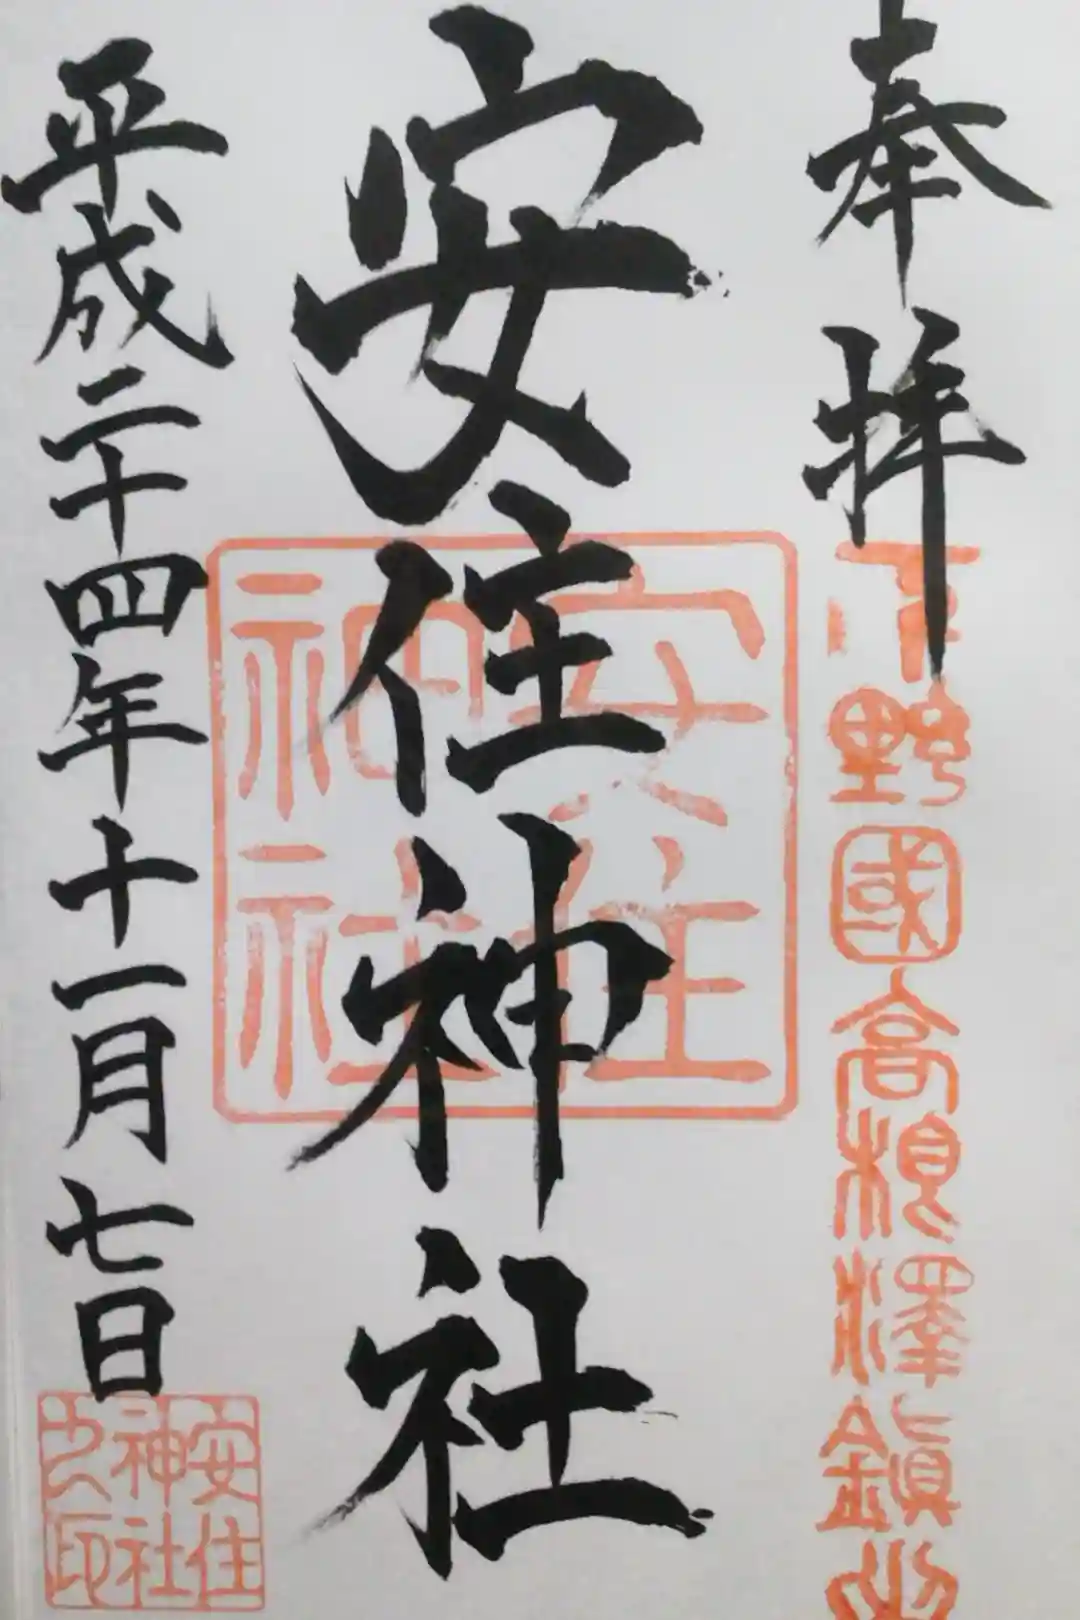 奉拝
下野國高根澤鎮
安住神社
安住
神社
平成二十四年十一月七日
安住
神社
之印